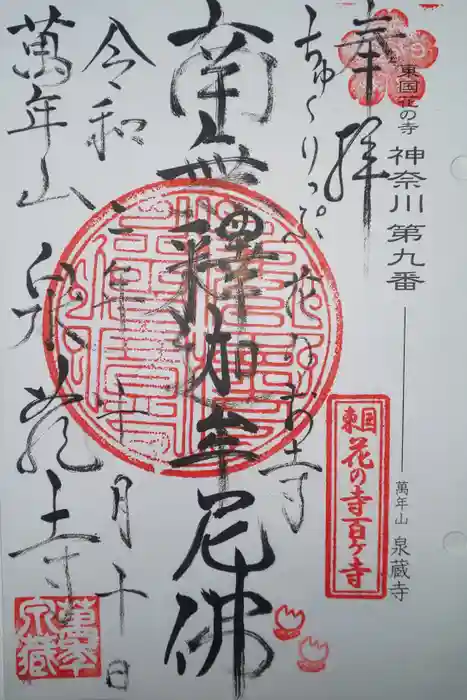 東国花の寺
神奈川第九番
萬年山 泉蔵寺
奉拝
東国
花の寺百ヶ寺
ちゅーりっぷ 花のお寺
南無釋迦牟尼佛
令和三年 月十日
萬年山 泉蔵寺
萬年
泉蔵